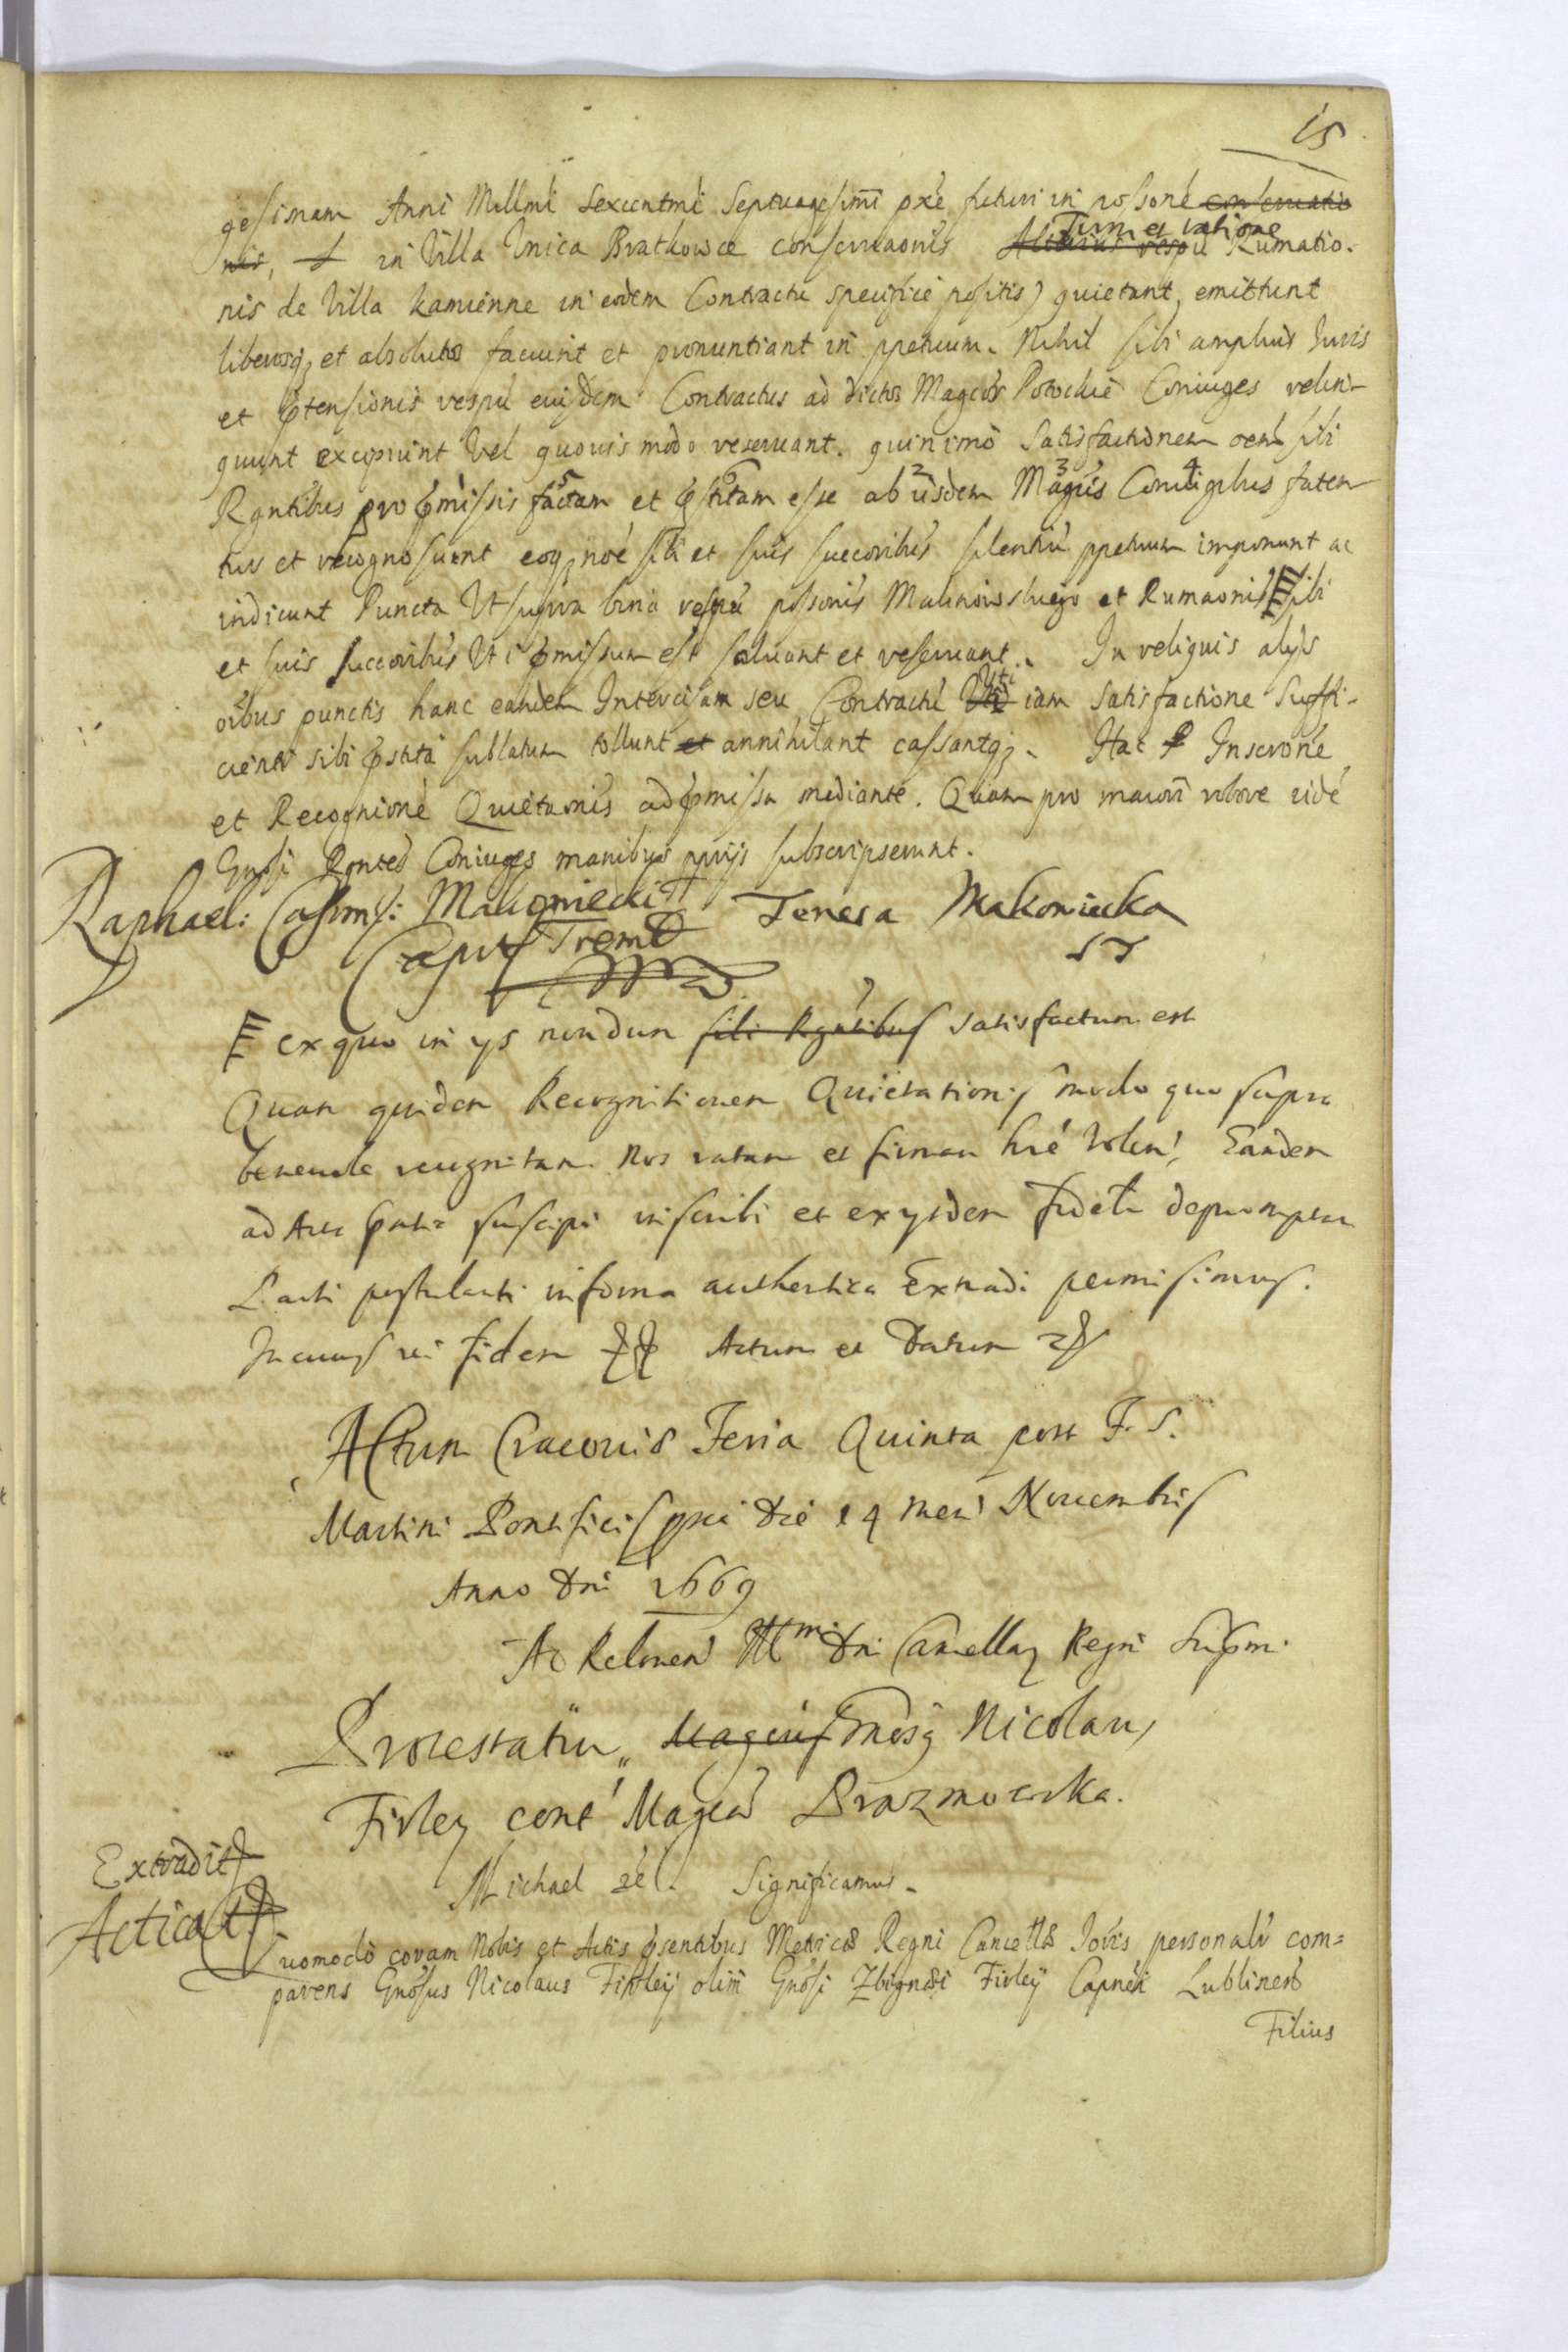 15
gesimam Anni Millmi Sexcentmi Septuagesimi pxe futuri in
in Villa Vnica Bratkowce conseruaonis Tum et ratione Rumatio-
nis de Villa Kamienne in eodem Contractu specifice positis) quietant, emittunt
liberosq; et absolutos faciunt et pronuntiant in ppetuum. Nihil sibi amplius Iuris
et ptensionis respu eiusdem Contractus ad dictos Magcos Potockie Coniuges relin-
quunt excipiunt Vel quouis modo reseruant. quinimo Satisfactionem oem sibi
Rgntibus pro pmissis factam et pstitam esse ab iisdem Magcis Coniugibus faten-
tur et recognoscunt eoq; noe sibi et suis succoribus silentiu ppetuum imponunt ac
indicunt Puncta Vt supra bina respu psonis Malinowskiego et Rumaonis sibi
et suis succoribus Vti pmissum est saluant et reseruant. In reliquis alijs
oibus punctis hanc eandem Intercisam seu Contractu Vti iam Satisfactione Suffi-
cienti sibi pstita sublatum tollunt et annihilant cassantq;. Hac Inscrone
et Recognione Quietaonis ad pmissa mediante. Quam pro maiori robore iide
Gnosi Rgntes Coniuges manibus pprijs subscripserunt.
Raphael: Casim: Makowiecki
Capit Tremb
Teresa Makowiecka
ex quo in ys nondum sibi Rgntibus satisfactum est
Quam quidem Recognitionem Quietationis modo quo supra
beneuole recognitam Nos ratam et firmam hre Volen, Eandem
ad Acta pntia suscipi inscribi et ex ysdem fidelr depromptam
Parti postulanti in forma authentica Extradi permisimus.
In cuius rei fidem Actum et Datum
Actum Cracouiae Feria Quinta post F. S.
Martini Pontificis pxa die 14 Men Nouembris
Anno Dni 1669
Ad Relonem Illmi Dni Cancellarij Regni Supmi
Protestatur Magcus Gnosq Nicolaus
Firley cont Magcam Prazmowska.
Extradit
Michael etc. Significamus.
Acticat
Quomodo coram Nobis et Actis psentibus Metrices Regni Cancellae Iovis personalr com=
parens Gnosus Nicolaus Firleij olim Gnosi Zbignaei Firleij Capnei Lublinen
Filius